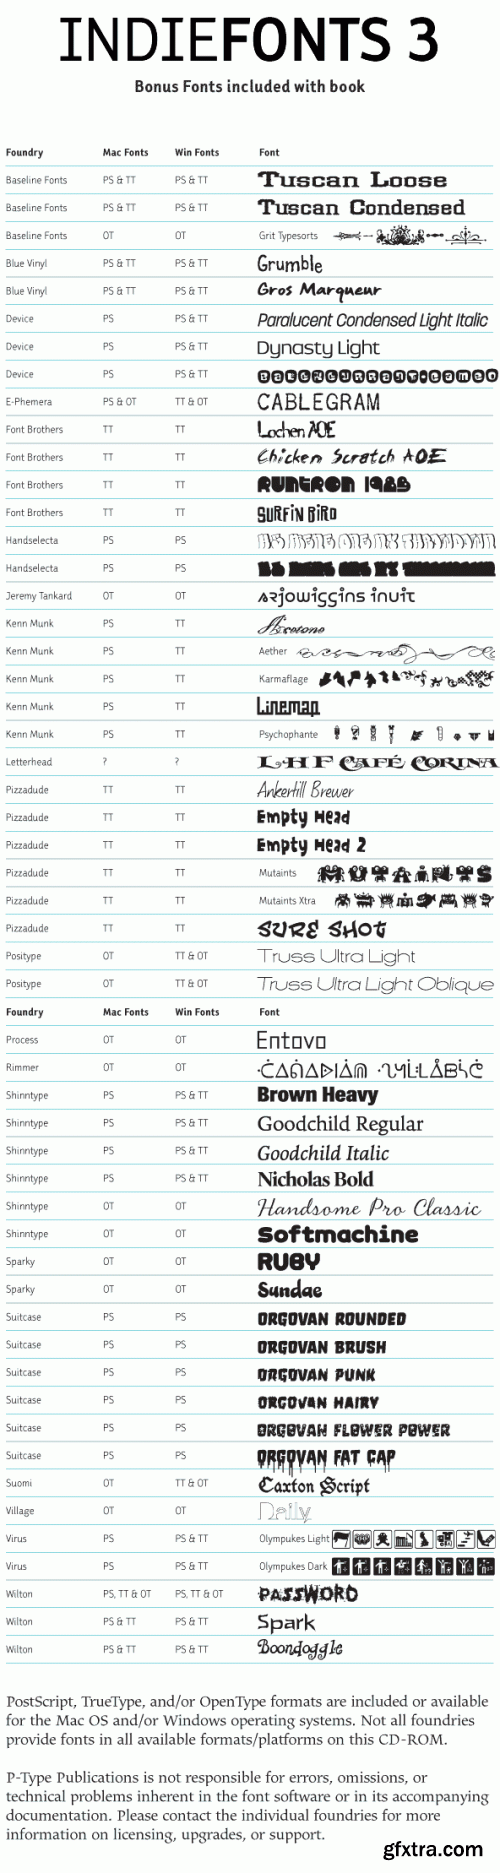 INDIEFONTS 3
Bonus Fonts included with book
Foundry Mac Fonts Win Fonts Font
Baseline Fonts PS & TT PS & TT Tuscan Loose
Baseline Fonts PS & TT PS & TT Tuscan Condensed
Baseline Fonts OT OT Grit Typesorts
Blue Vinyl PS & TT PS & TT Grumble
Blue Vinyl PS & TT PS & TT Gros Marqueur
Device PS PS & TT Paralucent Condensed Light Italic
Device PS PS & TT Dynasty Light
Device PS PS & TT
E-Phemera PS & OT TT & OT CABLEGRAM
Font Brothers TT TT Lochen AOE
Font Brothers TT TT Chicken Scratch AOE
Font Brothers TT TT RUNTRON 1983
Font Brothers TT TT SURFIN BIRD
Handselecta PS PS
Handselecta PS PS
Jeremy Tankard OT OT arjowiggins inuit
Kenn Munk PS TT
Kenn Munk PS TT Aether
Kenn Munk PS TT Karmaflage
Kenn Munk PS TT Linemap
Kenn Munk PS TT Psychophante
Letterhead ? ? LHF CAFÉ CORINA
Pizzadude TT TT Ankertill Brewer
Pizzadude TT TT Empty Head
Pizzadude TT TT Empty Head 2
Pizzadude TT TT Mutaints MUTAINTS
Pizzadude TT TT Mutaints Xtra
Pizzadude TT TT SURE SHOT
Positype OT TT & OT Truss Ultra Light
Positype OT TT & OT Truss Ultra Light Oblique
Foundry Mac Fonts Win Fonts Font
Process OT OT Entovo
Rimmer OT OT
Shinntype PS PS & TT Brown Heavy
Shinntype PS PS & TT Goodchild Regular
Shinntype PS PS & TT Goodchild Italic
Shinntype PS PS & TT Nicholas Bold
Shinntype OT OT Handsome Pro Classic
Shinntype OT OT Softmachine
Sparky OT OT RUBY
Sparky OT OT Sundae
Suitcase PS PS ORGOVAN ROUNDED
Suitcase PS PS ORGOVAN BRUSH
Suitcase PS PS ORGOVAN PUNK
Suitcase PS PS ORGOVAN HAIRY
Suitcase PS PS ORGOVAN FLOWER POWER
Suitcase PS PS ORGOVAN FAT CAP
Suomi OT TT & OT Caxton Script
Village OT OT Daily
Virus PS PS & TT Olympukes Light
Virus PS PS & TT Olympukes Dark
Wilton PS, TT & OT PS, TT & OT PASSWORD
Wilton PS & TT PS & TT Spark
Wilton PS & TT PS & TT Boondoggle
PostScript, TrueType, and/or OpenType formats are included or available
for the Mac OS and/or Windows operating systems. Not all foundries
provide fonts in all available formats/platforms on this CD-ROM.
P-Type Publications is not responsible for errors, omissions, or
technical problems inherent in the font software or in its accompanying
documentation. Please contact the individual foundries for more
information on licensing, upgrades, or support.
gfxtra.com